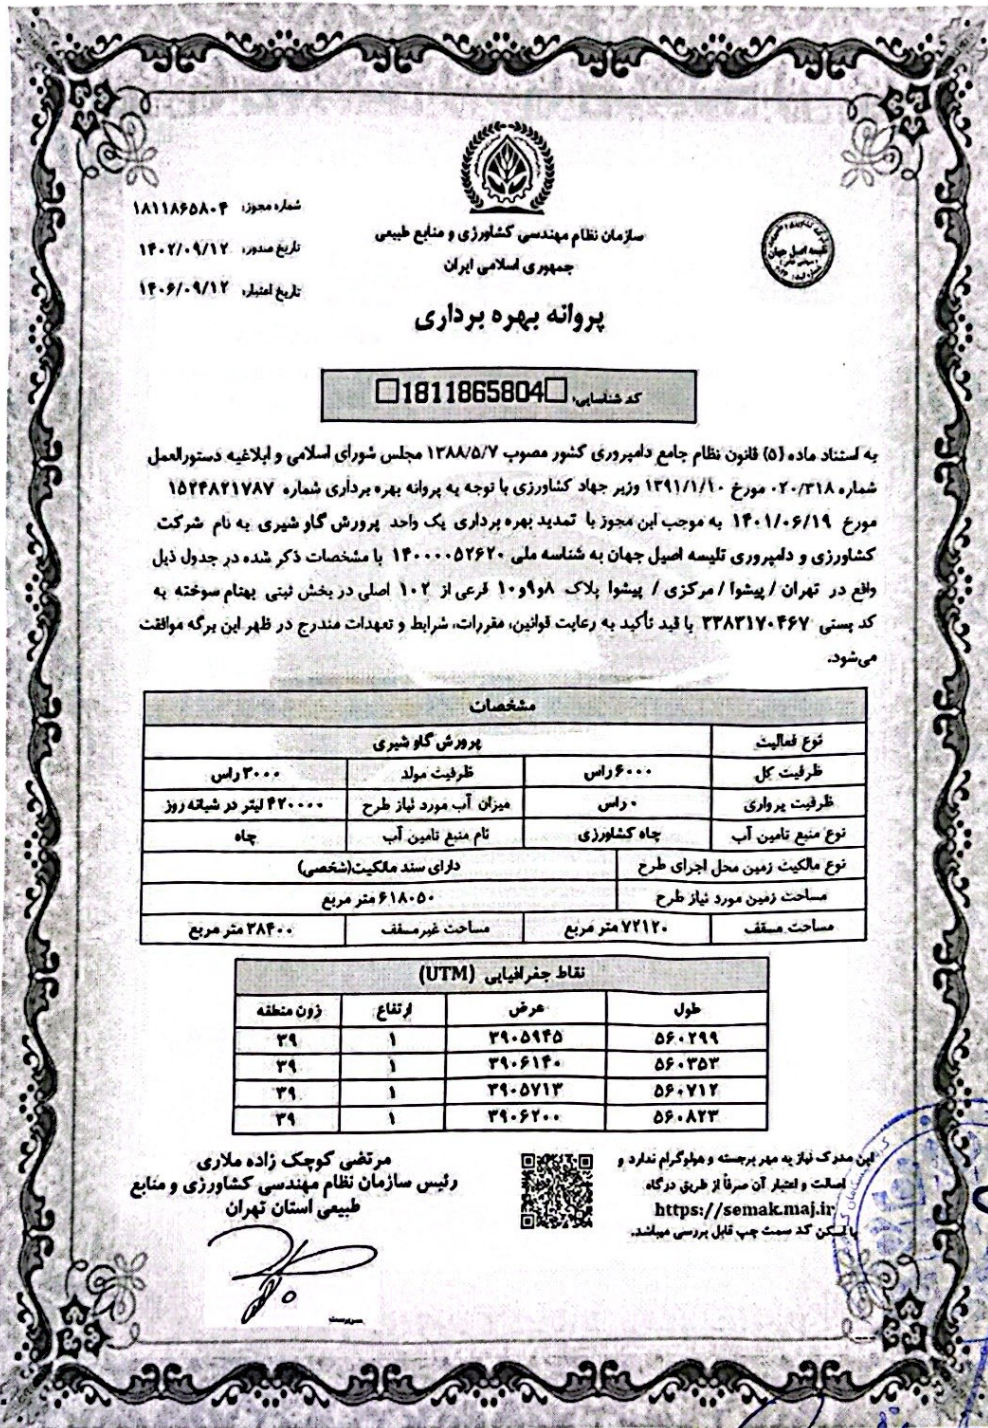 شماره مجوز: ۱۸۱۱۸۶۵۸۰۴
تاریخ صدور: ۱۴۰۲/۰۹/۱۲
تاریخ اعتبار: ۱۴۰۶/۰۹/۱۲
سازمان نظام مهندسی کشاورزی و منابع طبیعی
جمهوری اسلامی ایران
تلیسه اصیل جهان
پروانه بهره برداری
کد شناسایی: 1811865804
به استناد ماده (۵) قانون نظام جامع دامپروری کشور مصوب ۱۳۸۸/۵/۷ مجلس شورای اسلامی و ابلاغیه دستورالعمل
شماره ۰۲۰/۳۱۸ مورخ ۱۳۹۱/۱/۱۰ وزیر جهاد کشاورزی با توجه به پروانه بهره برداری شماره ۱۵۲۴۸۲۱۷۸۷
مورخ ۱۴۰۱/۰۶/۱۹ به موجب این مجوز با تمدید بهره برداری یک واحد پرورش گاو شیری به نام شرکت
کشاورزی و دامپروری تلیسه اصیل جهان به شناسه ملی ۱۴۰۰۰۰۵۲۶۲۰ با مشخصات ذکر شده در جدول ذیل
واقع در تهران / پیشوا / مرکزی / پیشوا پلاک ۸و۹و۱۰ فرعی از ۱۰۲ اصلی در بخش ثبتی بهنام سوخته به
کد پستی ۳۳۸۳۱۷۰۴۶۷ با قید تأکید به رعایت قوانین، مقررات، شرایط و تعهدات مندرج در ظهر این برگه موافقت
می‌شود.
مشخصات
نوع فعالیت پرورش گاو شیری
ظرفیت کل ۶۰۰۰ راس ظرفیت مولد ۳۰۰۰ راس
ظرفیت پرواری ۰ راس میزان آب مورد نیاز طرح ۴۲۰۰۰۰ لیتر در شبانه روز
نوع منبع تامین آب چاه کشاورزی نام منبع تامین آب چاه
نوع مالکیت زمین محل اجرای طرح دارای سند مالکیت(شخصی)
مساحت زمین مورد نیاز طرح ۶۱۸۰۵۰ متر مربع
مساحت مسقف ۷۲۱۲۰ متر مربع مساحت غیرمسقف ۳۸۴۰۰ متر مربع
نقاط جغرافیایی (UTM)
طول عرض ارتفاع زون منطقه
۵۶۰۲۹۹ ۳۹۰۵۹۴۵ ۱ ۳۹
۵۶۰۳۵۳ ۳۹۰۶۱۴۰ ۱ ۳۹
۵۶۰۷۱۲ ۳۹۰۵۷۱۳ ۱ ۳۹
۵۶۰۸۲۳ ۳۹۰۶۲۰۰ ۱ ۳۹
این مدرک نیاز به مهر برجسته و هولوگرام ندارد و
اصالت و اعتبار آن صرفاً از طریق درگاه
https://semak.maj.ir
با اسکن کد سمت چپ قابل بررسی میباشد.
مرتضی کوچک زاده ملاری
رئیس سازمان نظام مهندسی کشاورزی و منابع
طبیعی استان تهران
سرپرست